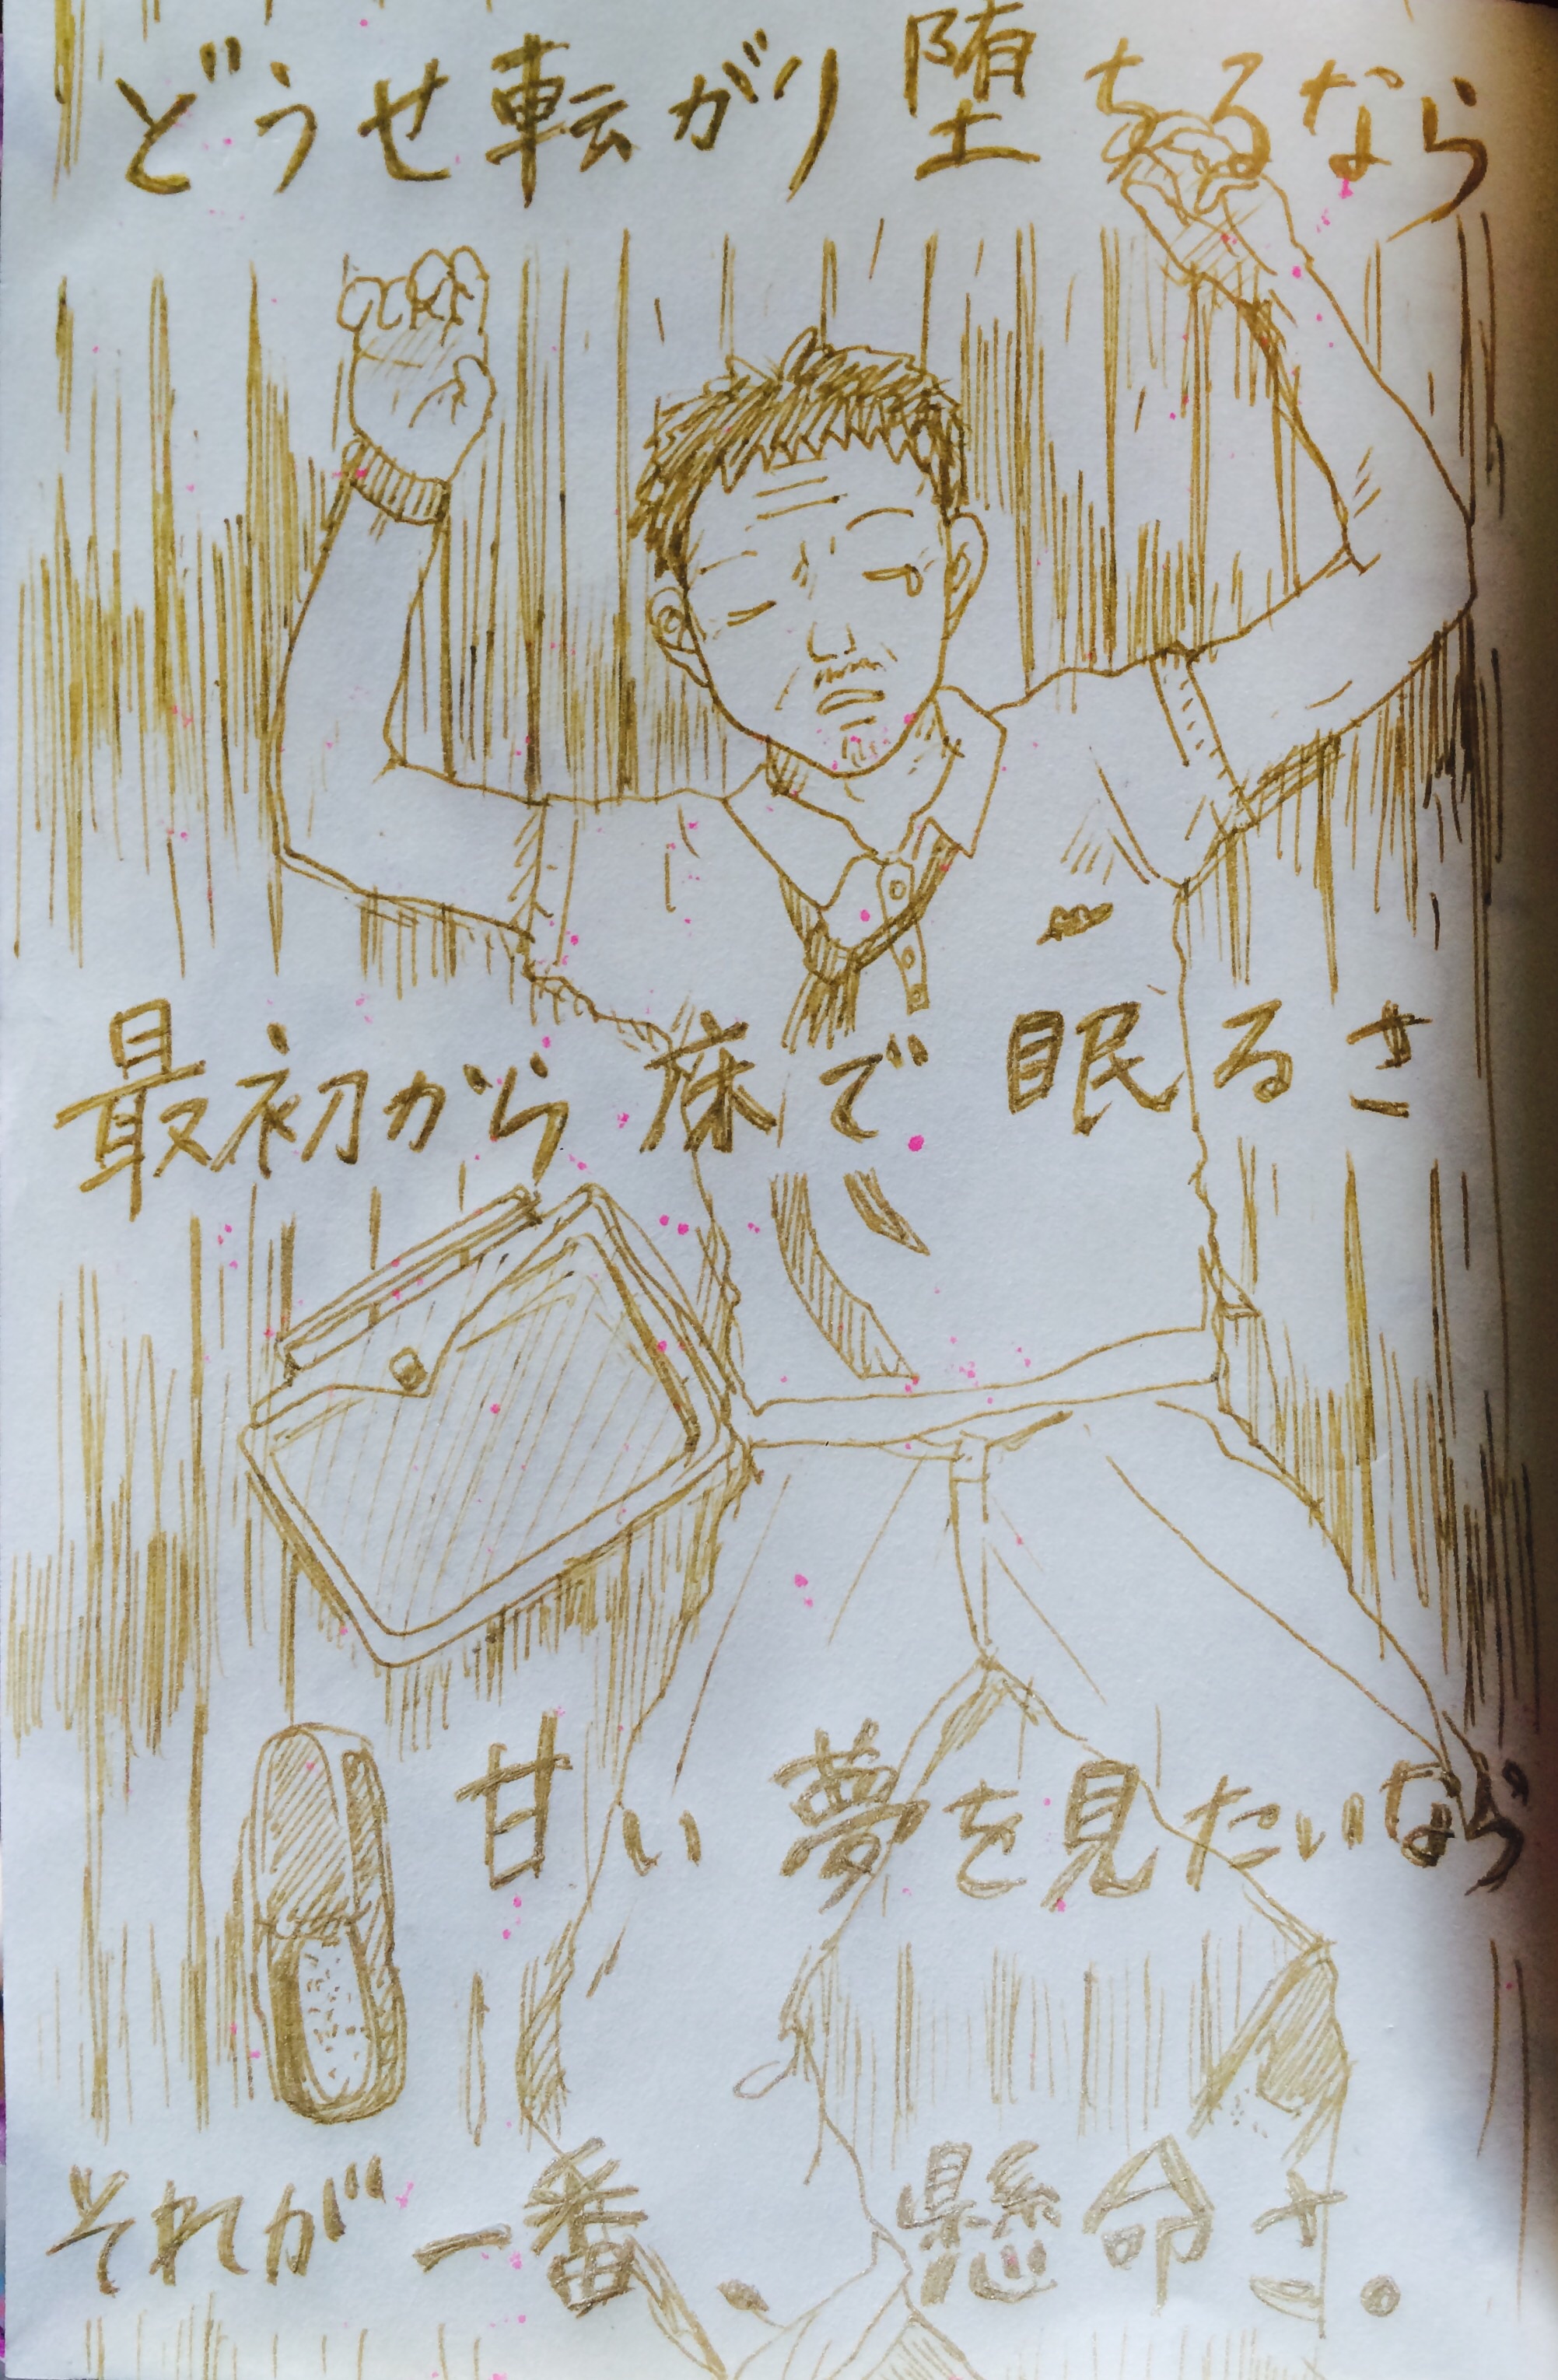 どうせ転がり堕ちるなら
最初から床で眠るさ
甘い夢を見たいなら
それが一番、懸命さ。